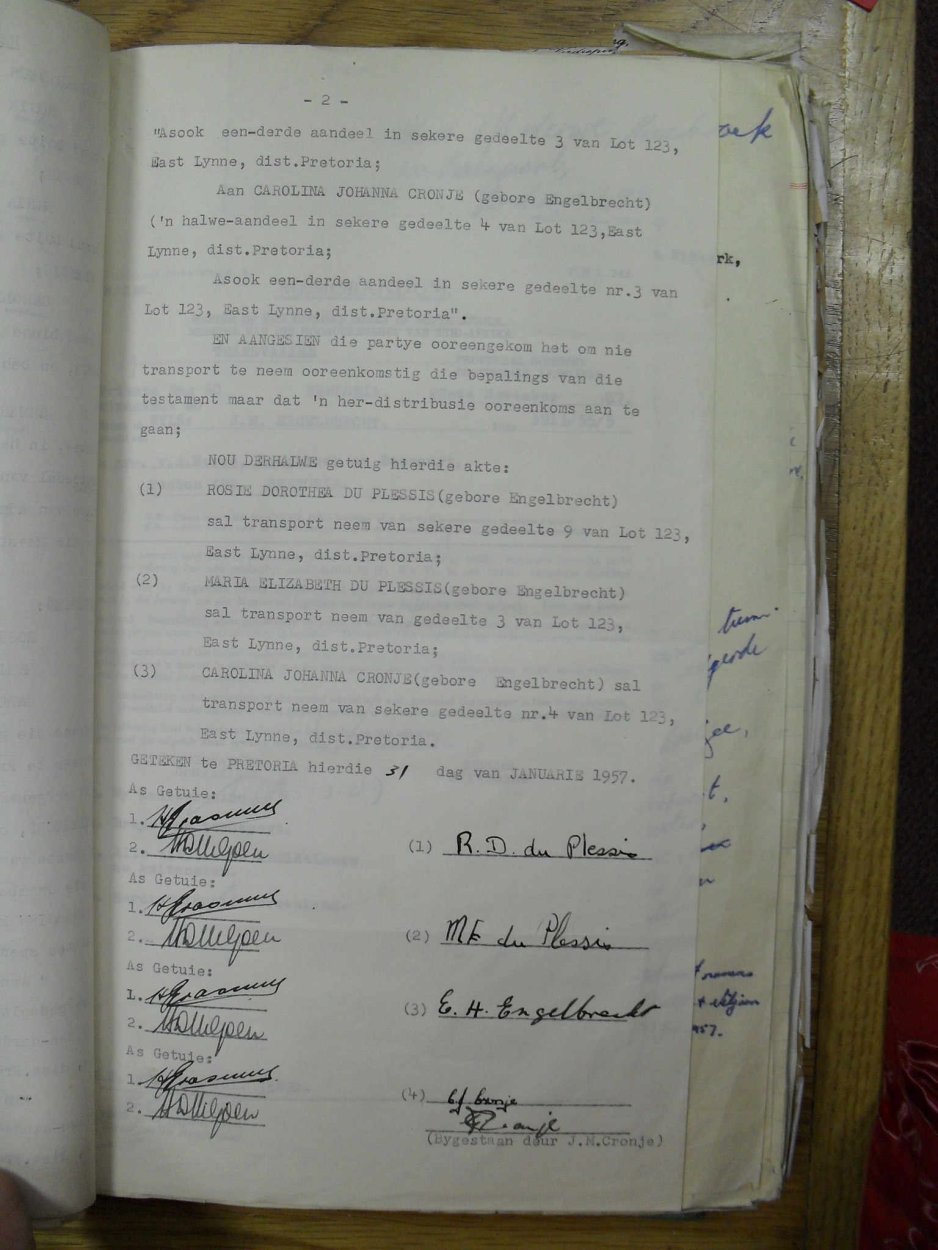 - 2 -
"Asook een-derde aandeel in sekere gedeelte 3 van Lot 123,
East Lynne, dist.Pretoria;
Aan CAROLINA JOHANNA CRONJE (gebore Engelbrecht)
('n halwe-aandeel in sekere gedeelte 4 van Lot 123,East
Lynne, dist.Pretoria;
Asook een-derde aandeel in sekere gedeelte nr.3 van
Lot 123, East Lynne, dist.Pretoria".
EN AANGESIEN die partye ooreengekom het om nie
transport te neem ooreenkomstig die bepalings van die
testament maar dat 'n her-distribusie ooreenkoms aan te
gaan;
NOU DERHALWE getuig hierdie akte:
(1) ROSIE DOROTHEA DU PLESSIS(gebore Engelbrecht)
sal transport neem van sekere gedeelte 9 van Lot 123,
East Lynne, dist.Pretoria;
(2) MARIA ELIZABETH DU PLESSIS(gebore Engelbrecht)
sal transport neem van gedeelte 3 van Lot 123,
East Lynne, dist.Pretoria;
(3) CAROLINA JOHANNA CRONJE(gebore Engelbrecht) sal
transport neem van sekere gedeelte nr.4 van Lot 123,
East Lynne, dist.Pretoria.
GETEKEN te PRETORIA hierdie 31 dag van JANUARIE 1957.
As Getuie:
1. HErasmus
2.
(1) R. D. du Plessis
As Getuie:
1. HErasmus
2.
(2) M E du Plessis
As Getuie:
1. HErasmus
2.
(3) E. H. Engelbrecht
As Getuie:
1. HErasmus
2.
(4) CJ Cronje
Cronje
(Bygestaan deur J.M.Cronje)
rk,